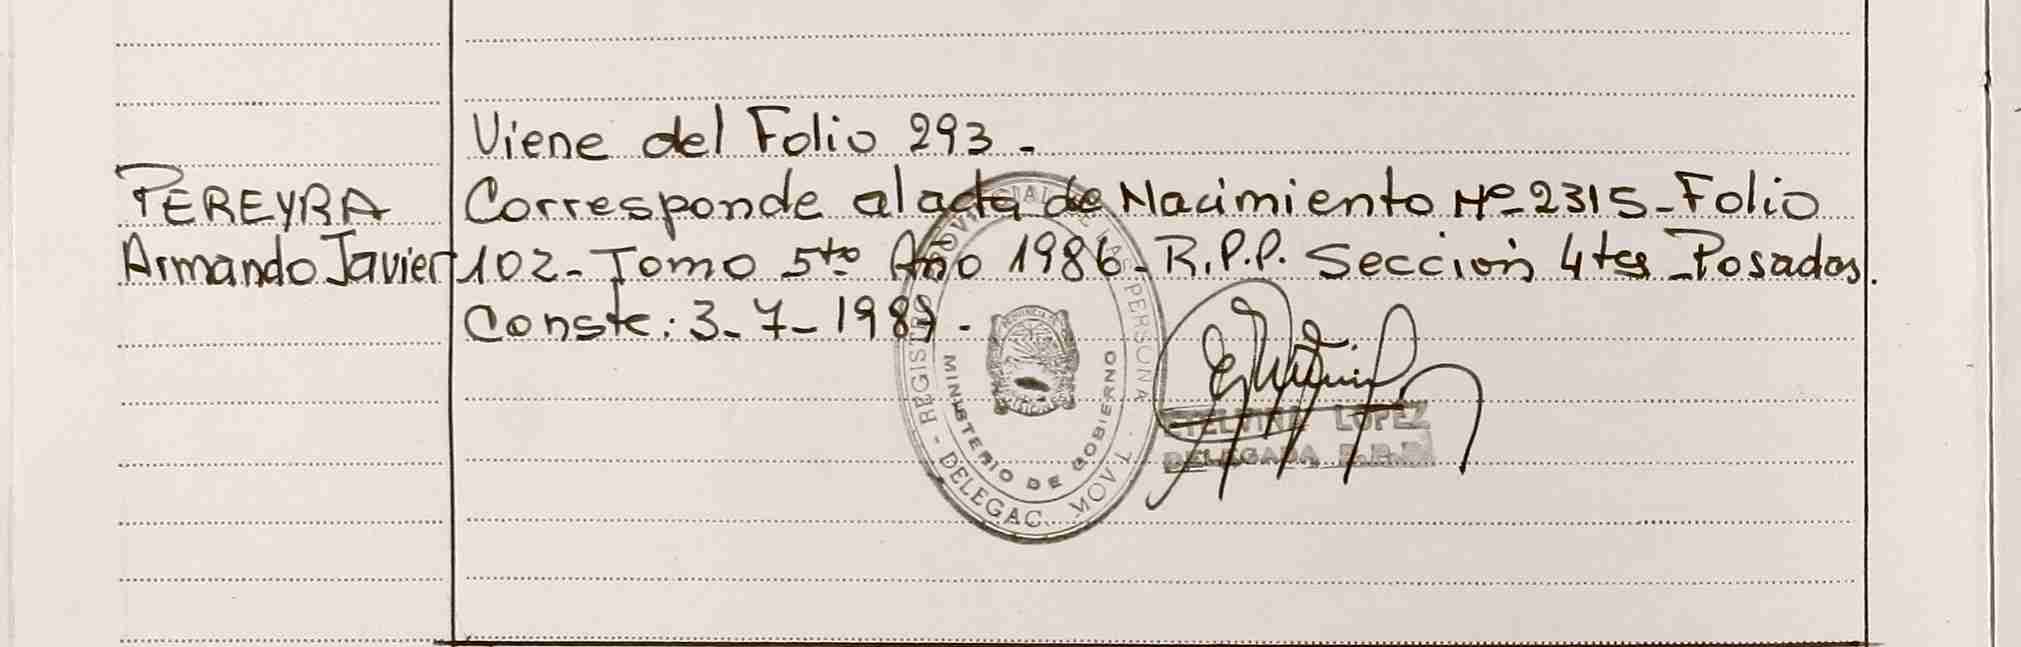 Viene del Folio 293.-
PEREYRA
Armando Javier
Corresponde al acta de Nacimiento Nº-2315-Folio
102-Tomo 5to Año 1986-R.P.P. Sección 4ta-Posadas.
Conste: 3-7-1987.-
REGISTRO PROVINCIAL DE LAS PERSONAS
MINISTERIO DE GOBIERNO
DELEGAC. MOVIL
ETELVINA LOPEZ
DELEGADA R.P.P.